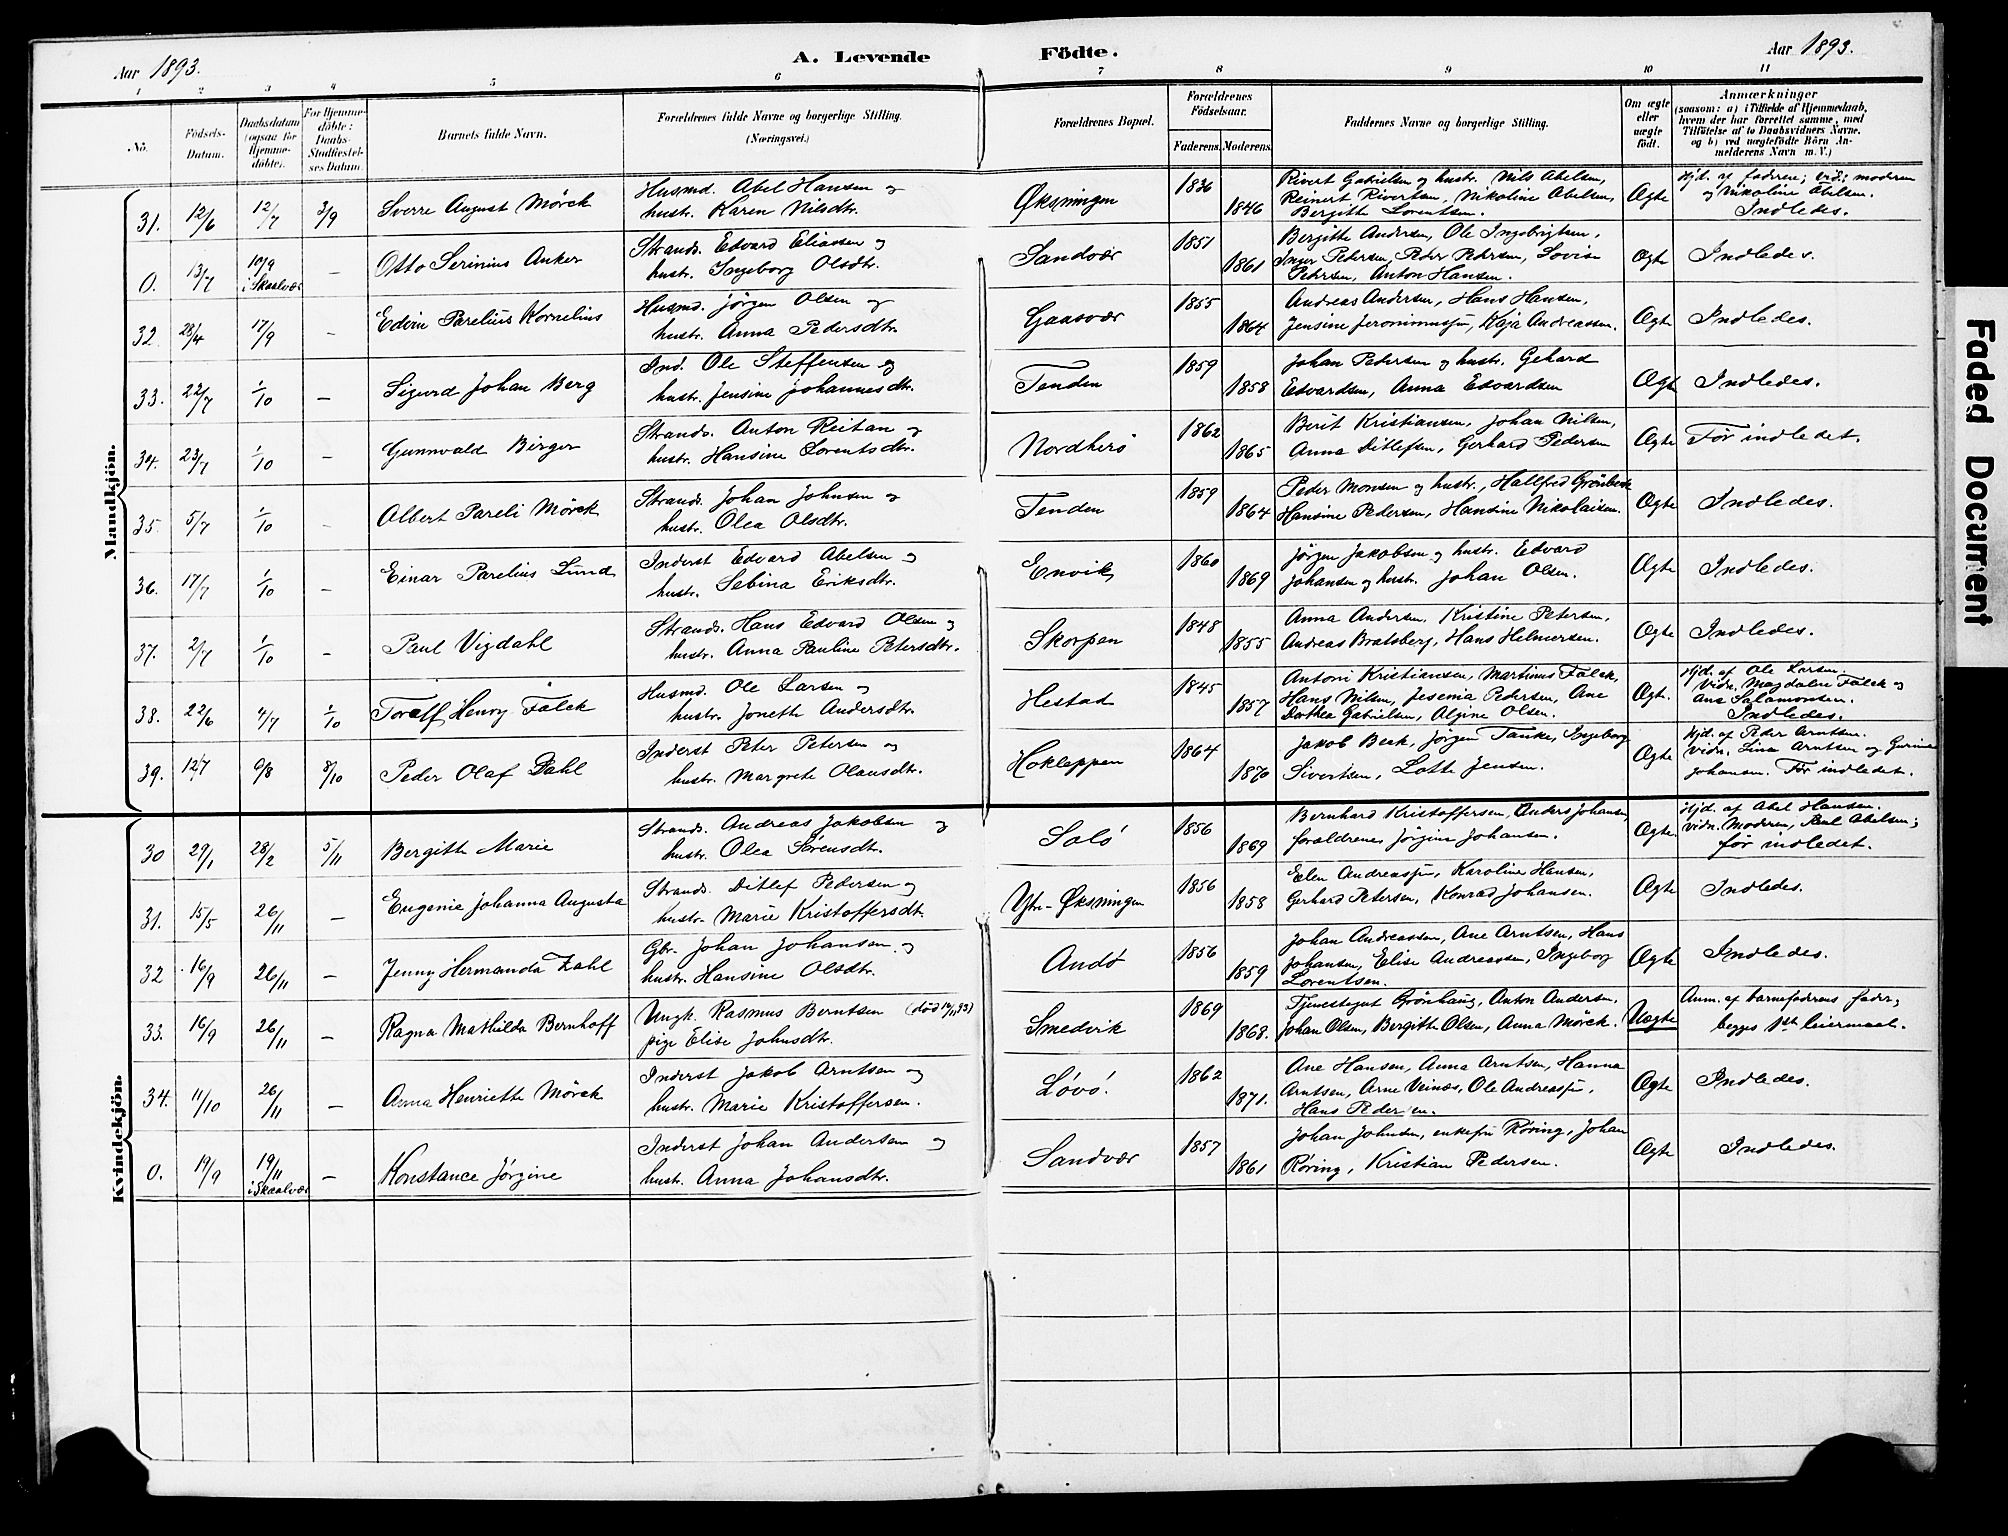 Aar 1893.
A. Levende Födte.
Aar 1893.
1 2 3 4 5 6 7 8 9 10 11
No.
Födsels-Datum.
Daabsdatum (ogsaa for Hjemme-döbte).
For Hjemme-döbte: Daabs-Stadfæstelses Datum.
Barnets fulde Navn.
Forældrenes fulde Navne og borgerlige Stilling. (Næringsvei.)
Forældrenes Bopæl.
Forældrenes Födselsaar.
Faderens. Moderens.
Faddernes Navne og borgerlige Stilling.
Om ægte eller uægte født.
Anmærkninger
(saasom: a) i Tilfælde af Hjemmedaab, hvem der har forrettet samme, med Tilföielse af to Daabsvidners Navne. og b) ved uægtefödte Börn Anmelderens Navn m. V.)
Mandkjön.
31. 12/6 12/7 3/9 Sverre August Mörck
Husmd. Abel Hansen og
hustr. Karen Nilsdtr.
Øksningen 1836 1846
Rivert Gabrielsen og hustr. Nils Abelsen,
Reinert Rivertsen, Nikoline Abelsen,
Bergitte Lorentsen.
Ægte
Hjd. af faderen; vid: moderen
og Nikoline Abelsen.
Indledes.
0. 13/7 10/9 i Skaalvær – Otto Serinius Anker
Strands. Edvard Eliassen og
hustr. Ingeborg Olsdtr.
Sandvær 1851 1861
Bergitte Andersen, Ole Ingebrigtsen,
Inger Petersen, Peder Pedersen, Lovise
Pedersen, Anton Hansen.
Ægte Indledes.
32. 28/4 17/9 – Edvin Parelius Kornelius
Husmd. Jörgen Olsen og
hustr. Anna Pedersdtr.
Gaasvær 1855 1864
Andreas Andersen, Hans Hansen,
Jensine Jeronimussen, Kaja Andreassen.
Ægte Indledes.
33. 22/7 1/10 – Sigurd Johan Berg
Ind. Ole Steffensen og
hustr. Jensine Johannesdtr.
Tenden 1859 1858
Johan Pedersen og hustr. Gehard
Edvardsen, Anna Edvardsen
Ægte Indledes.
34. 23/7 1/10 – Gunnvald Birger
Strands. Anton Reitan og
hustr. Hansine Lorentsdtr.
Nordherö 1862 1865
Berit Kristiansen, Johan Nilsen,
Anna Ditlefsen, Gerhard Pedersen
Ægte Før indledet.
35. 5/7 1/10 – Albert Pareli Mörck
Strands. Johan Johnsen og
hustr. Olea Olsdtr.
Tenden 1859 1864
Peder Monsen og hustr., Hallfred Grönbeck
Hansine Pedersen, Hansine Nikolaisen.
Ægte Indledes.
36. 17/7 1/10 – Einar Parelius Lund
Inderst Edvard Abelsen og
hustr. Sebina Eriksdtr.
Envik 1860 1869
Jörgen Jakobsen og hustr. Edvard
Johansen og hustr. Johan Olsen.
Ægte Indledes.
37. 2/7 1/10 – Paul Vigdahl
Strands. Hans Edvard Olsen og
hustr. Anna Pauline Petersdtr.
Skorpen 1848 1855
Anna Andersen, Kristine Petersen,
Andreas Bratsberg, Hans Helmersen.
Ægte Indledes.
38. 22/6 4/7 1/10 Toralf Henry Falck
Husmd. Ole Larsen og
hustr. Joneth Andersdtr.
Hestad 1845 1857
Antoni Kristiansen, Martinus Falck,
Hans Nilsen, Jesenia Pedersen, Ane
Dorthea Gabrielsen, Algine Olsen.
Ægt.
Hjd. af Ole Larsen.
Vidn. Magdalene Falck og
Ane Salamonsen.
Indledes.
39. 12/7 6/8 8/10 Peder Olaf Dahl
Inderst Peter Petersen og
hustr. Margrete Olausdtr.
Hokleppen 1864 1870
Jakob Beck, Jörgen Tanke, Ingeborg
Sivertsen, Lotte Jensen.
Ægte
Hjd. af Peder Arntsen.
Vidn. Lina Arntsen og Gurine
Johansen. Før indledet.
Kvindekjön.
30 29/1 28/2 5/11 Bergitte Marie
Strands. Andreas Jakobsen og
hustr. Olea Sörensdtr.
Solö 1856 1869
Bernhard Kristoffersen, Anders Johansen,
foraldrene, Jörgine Johansen.
Ægte
Hjd. af Abel Hansen.
vidn. Moderen, Paul Abelsen;
før indledet.
31. 15/5 26/11 – Eugenie Johanna Augusta
Strands. Ditlef Pedersen og
hustr. Marie Kristoffersdt.
Ytre-Øksningen 1856 1858
Elen Andreassen, Karoline Hansen,
Gerhard Petersen, Konrad Johansen.
Ægte Indledes.
32 16/9 26/11 – Jenny Hermanda Zahl
Gbr. Johan Johansen og
hustr. Hansine Olsdtr.
Andö 1856 1859
Johan Andreassen, Ane Arntsen, Hans
Johansen, Elise Andreassen, Ingeborg
Lorentsen.
Ægte Indledes.
33. 16/9 26/11 – Ragna Mathilda Bernhoff
Ungk. Rasmus Berntsen (död 12/1 93)
pige Elise Johnsdtr.
Smedvik 1869 1868.
Tjenestegut Grönhaug, Anton Andersen,
Johan Olsen, Bergitte Olsen, Anna Mörck.
Uægte
Anm. af barnefaderens fader;
begges 1st leiermaal.
34. 11/10 26/11 – Anna Henriette Mörck
Inderst Jakob Arntsen og
hustr. Marie Kristoffersen.
Lövö. 1862 1871.
Ane Hansen, Anna Arntsen, Hanna
Arntsen, Arne Veines, Ole Andreassen,
Hans Pedersen.
Ægte Indledes.
0. 19/9 19/11 i Skaalvær – Konstance Jörgine
Inderst Johan Andersen og
hustr. Anna Johansdtr.
Sandvær 1857 1861
Johan Johnsen, enkefru Röring, Johan
Röring, Kristian Pedersen.
Ægte Indledes.
Faded Document